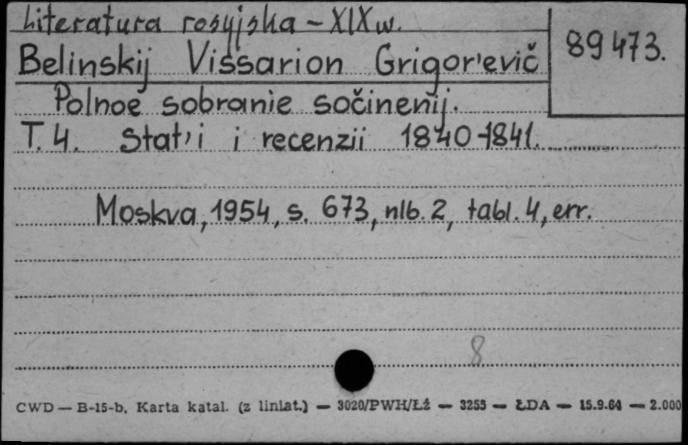 Literatura rosyjska - XIX w.
89473.
Belinskij Vissarion Grigor'evič
Polnoe sobranie sočinenij.
T. 4. Stat'i i recenzii 1840-1841.
Moskva, 1954, s. 673, nlb. 2, tabl. 4, err.
8
CWD — B-15-b. Karta katal. (z liniat.) — 3020/PWH/Łż — 3253 — ŁDA — 15.9.64 — 2.000